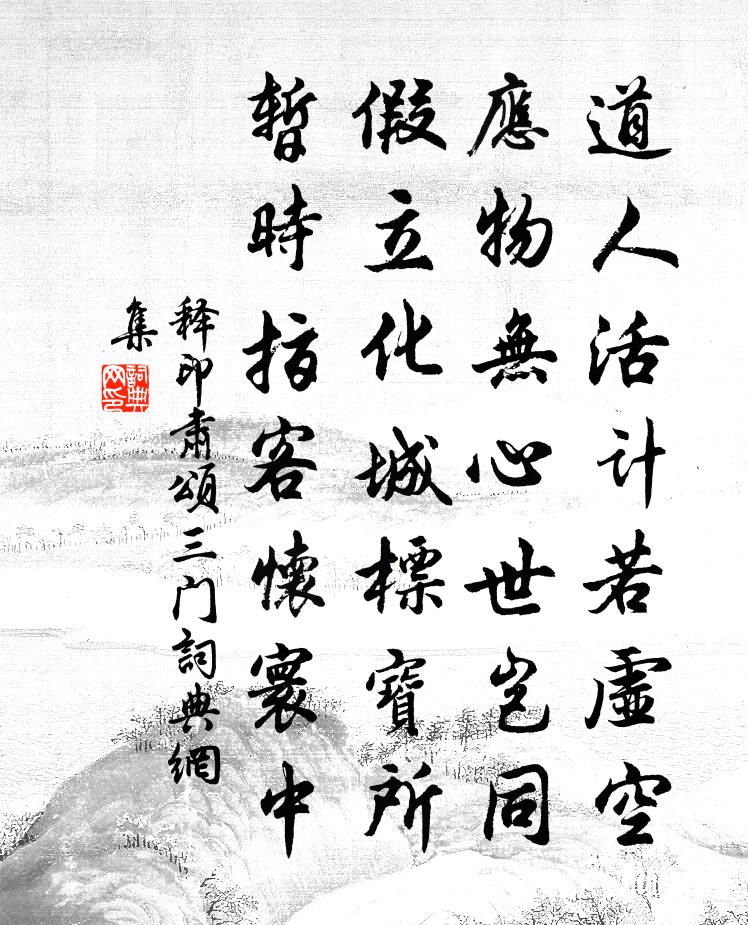 道人活計若虛空
應物無心世豈同
假立化城標寶所
暫時指客懷寰中
释印肅頌三门詞典網
集
詞典
网印